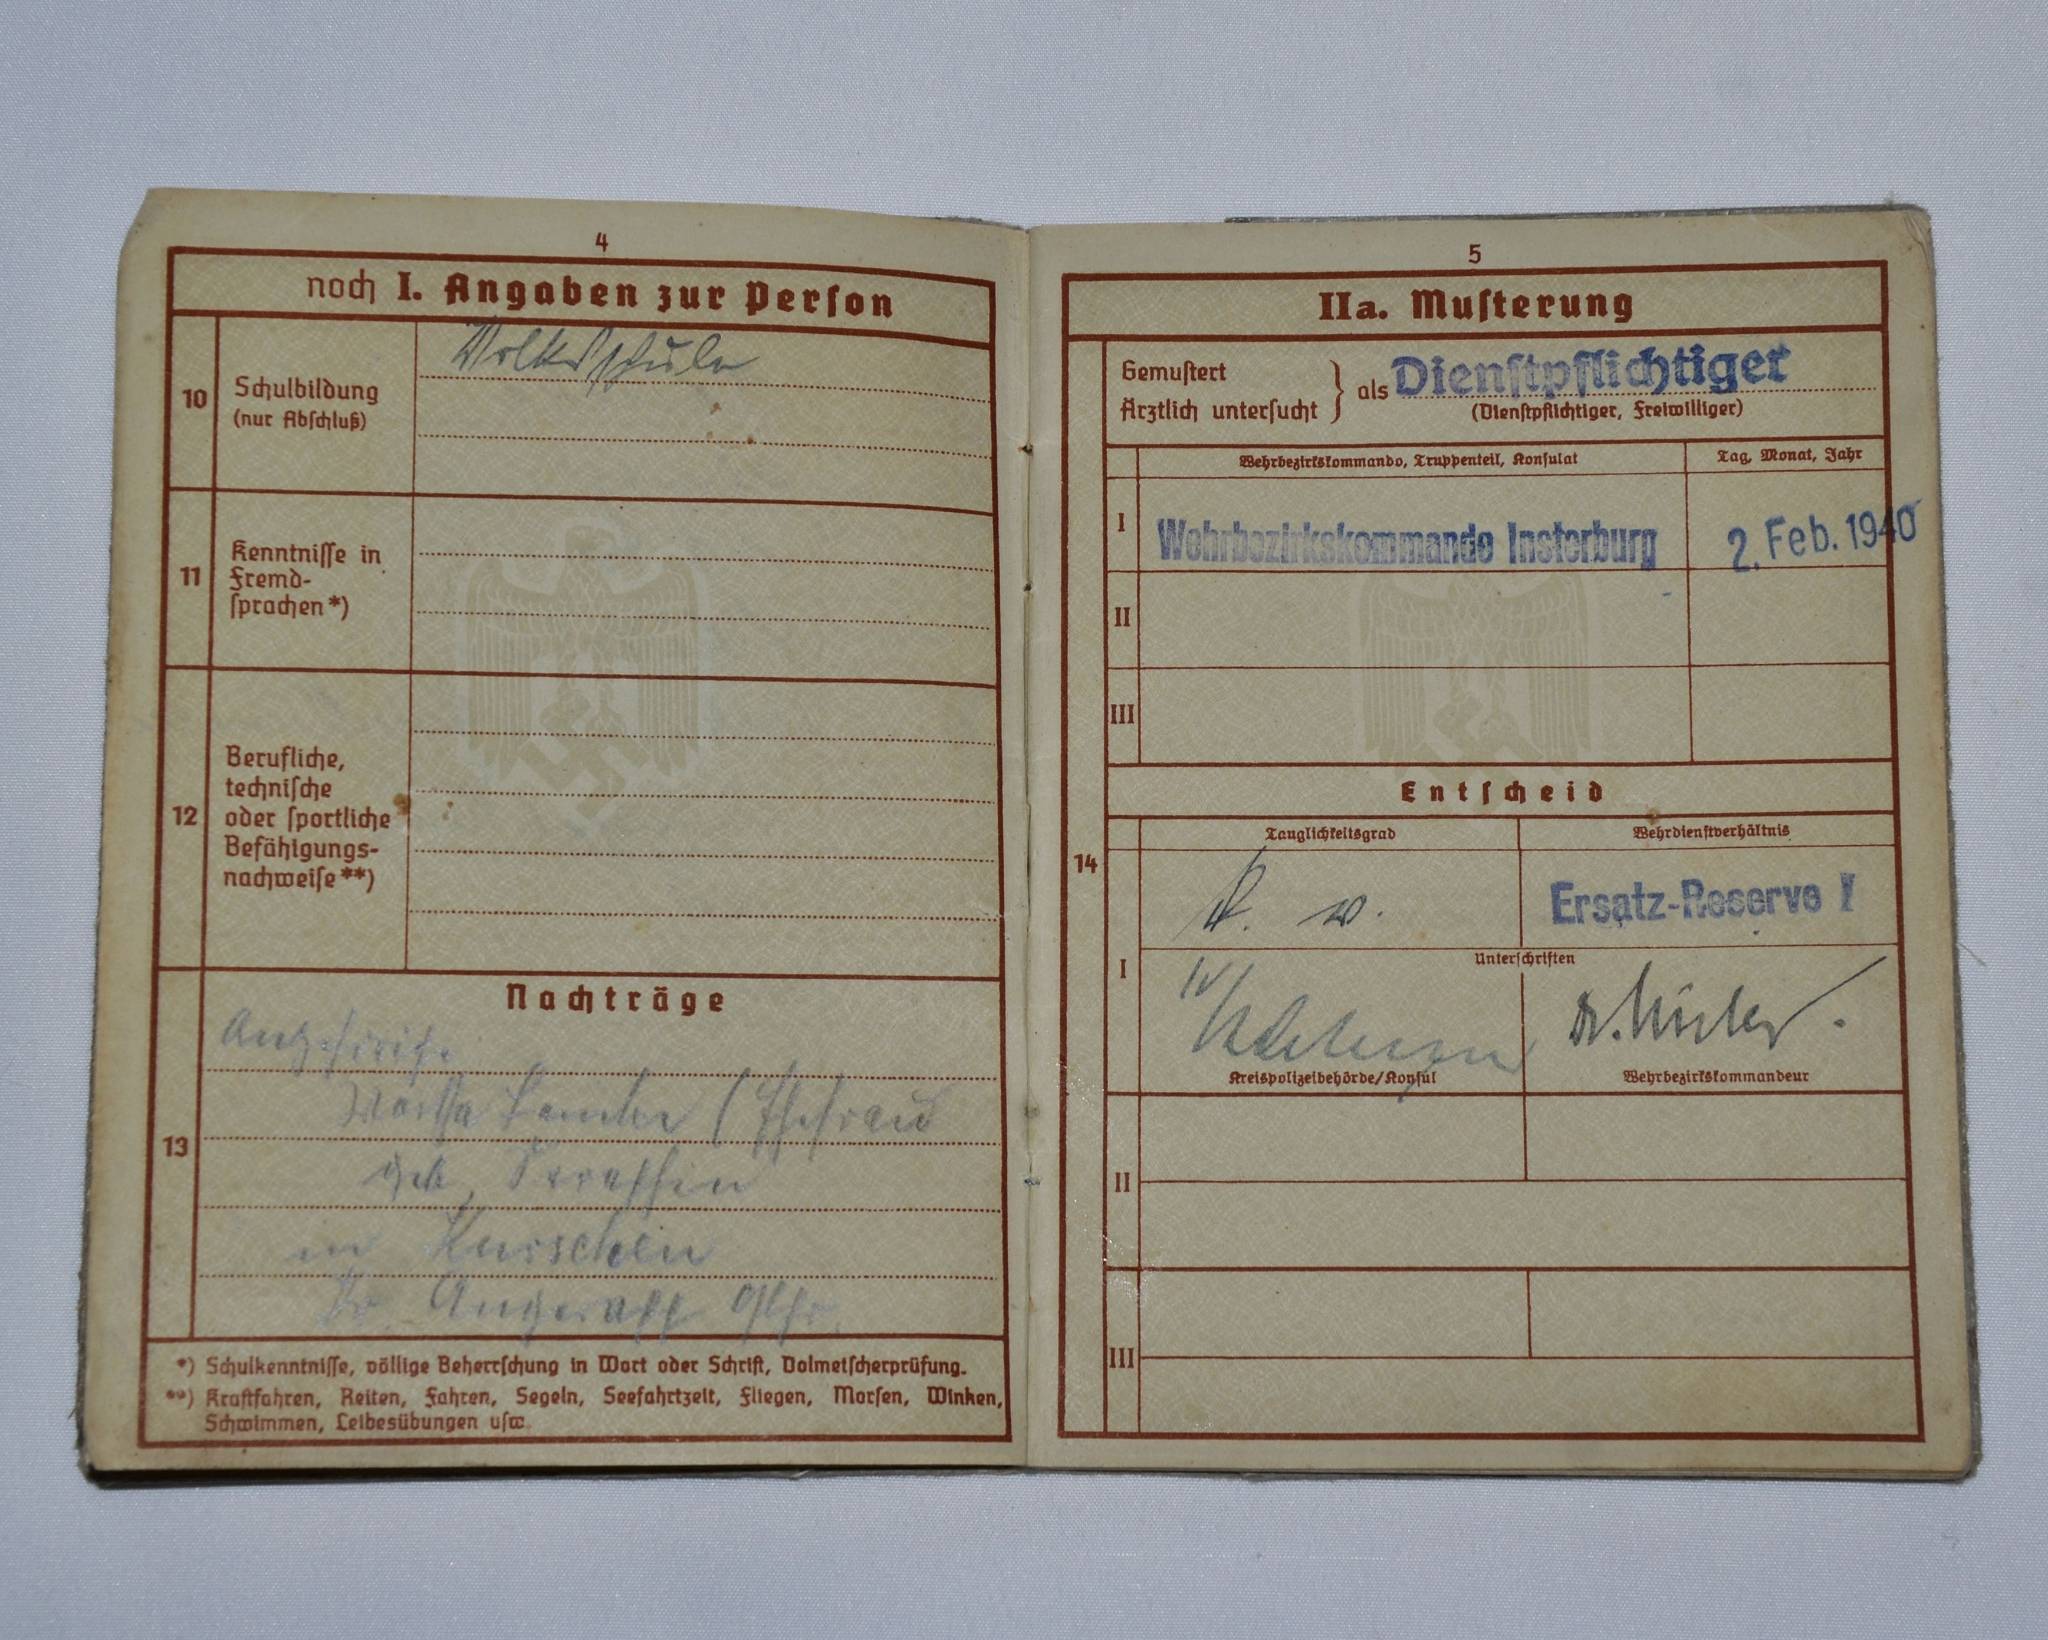 4
noch I. Angaben zur Person
10 Schulbildung
(nur Abschluß)
Volksschule
11 Kenntnisse in
Fremd-
sprachen *)
12 Berufliche,
technische
oder sportliche
Befähigungs-
nachweise **)
13 Nachträge
(Ehefrau
geb.
in Kurschen
Kr. Angerapp Ostpr.
*) Schulkenntnisse, völlige Beherrschung in Wort oder Schrift, Dolmetscherprüfung.
**) Kraftfahren, Reiten, Fahren, Segeln, Seefahrtzeit, Fliegen, Morsen, Winken,
Schwimmen, Leibesübungen usw.
5
IIa. Musterung
Gemustert
Ärztlich untersucht } als Dienstpflichtiger
(Dienstpflichtiger, Freiwilliger)
Wehrbezirkskommando, Truppenteil, Konsulat Tag, Monat, Jahr
I Wehrbezirkskommando Insterburg 2. Feb. 1940
II
III
Entscheid
14
Tauglichkeitsgrad Wehrdienstverhältnis
k. v. Ersatz-Reserve I
I Unterschriften
Dr.
Kreispolizeibehörde/Konsul Wehrbezirkskommandeur
II
III